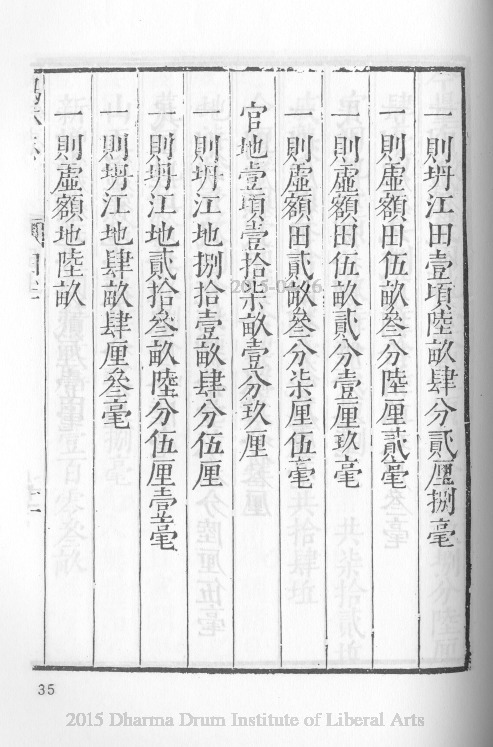 一則坍江田壹頃陸畝肆分貳厘捌毫
一則虛額田伍畝叁分陸厘貳毫
一則虛額田伍畝貳分壹厘玖毫
一則虛額田貳畝叁分柒厘伍毫
官地壹頃壹拾柒畝壹分玖厘
一則坍江地捌拾壹畝肆分伍厘
一則坍江地貳拾叁畝陸分伍厘壹毫
一則坍江地肆畝肆厘叁毫
一則虛額地陸畝
35
2015 Dharma Drum Institute of Liberal Arts